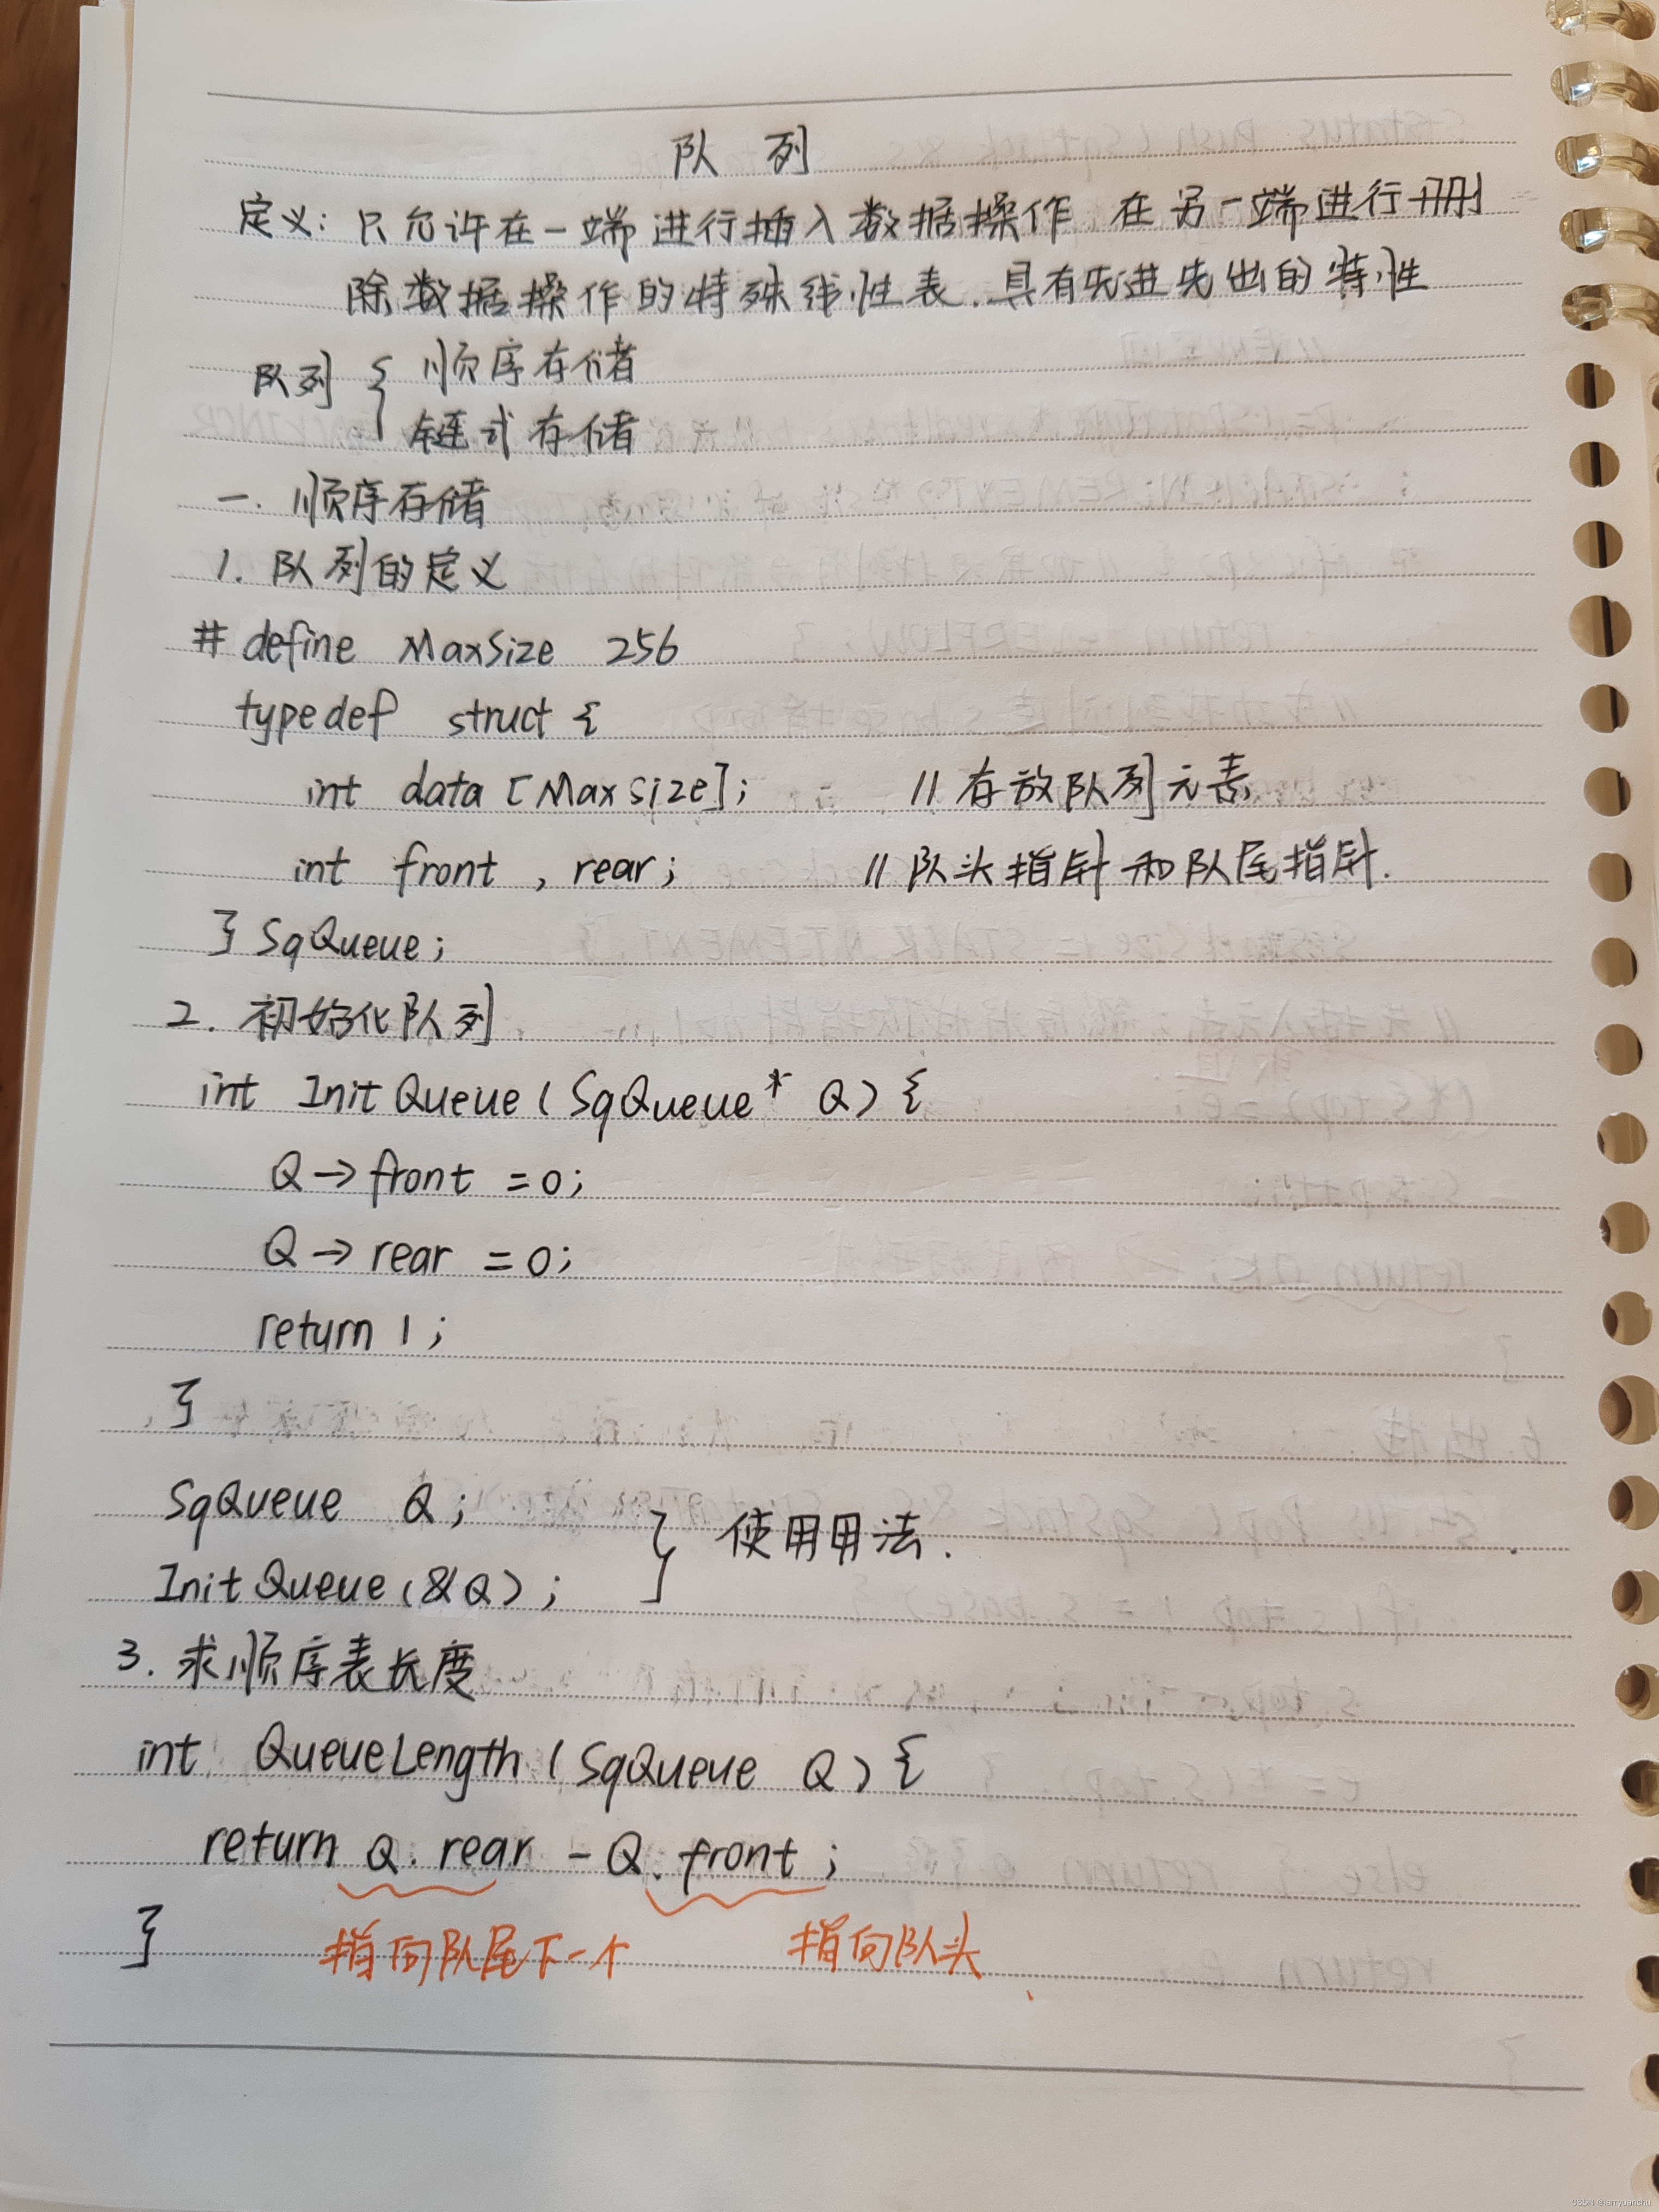 队 列
定义: 只允许在一端进行插入数据操作 在另一端进行删
除数据操作的特殊线性表. 具有先进先出的特性
队列 { 顺序存储
链式存储
一. 顺序存储
1. 队列的定义
# define MaxSize 256
typedef struct {
int data [MaxSize]; // 存放队列元素
int front , rear; // 队头指针和队尾指针.
} SqQueue;
2. 初始化队列
int InitQueue ( SqQueue* Q ) {
Q → front = 0;
Q → rear = 0;
return 1 ;
}
SqQueue Q ;
InitQueue (&Q) ; } 使用用法.
3. 求顺序表长度
int QueueLength ( SqQueue Q ) {
return Q. rear - Q. front ;
} 指向队尾下一个 指向队头
CSDN @iamyuanchu